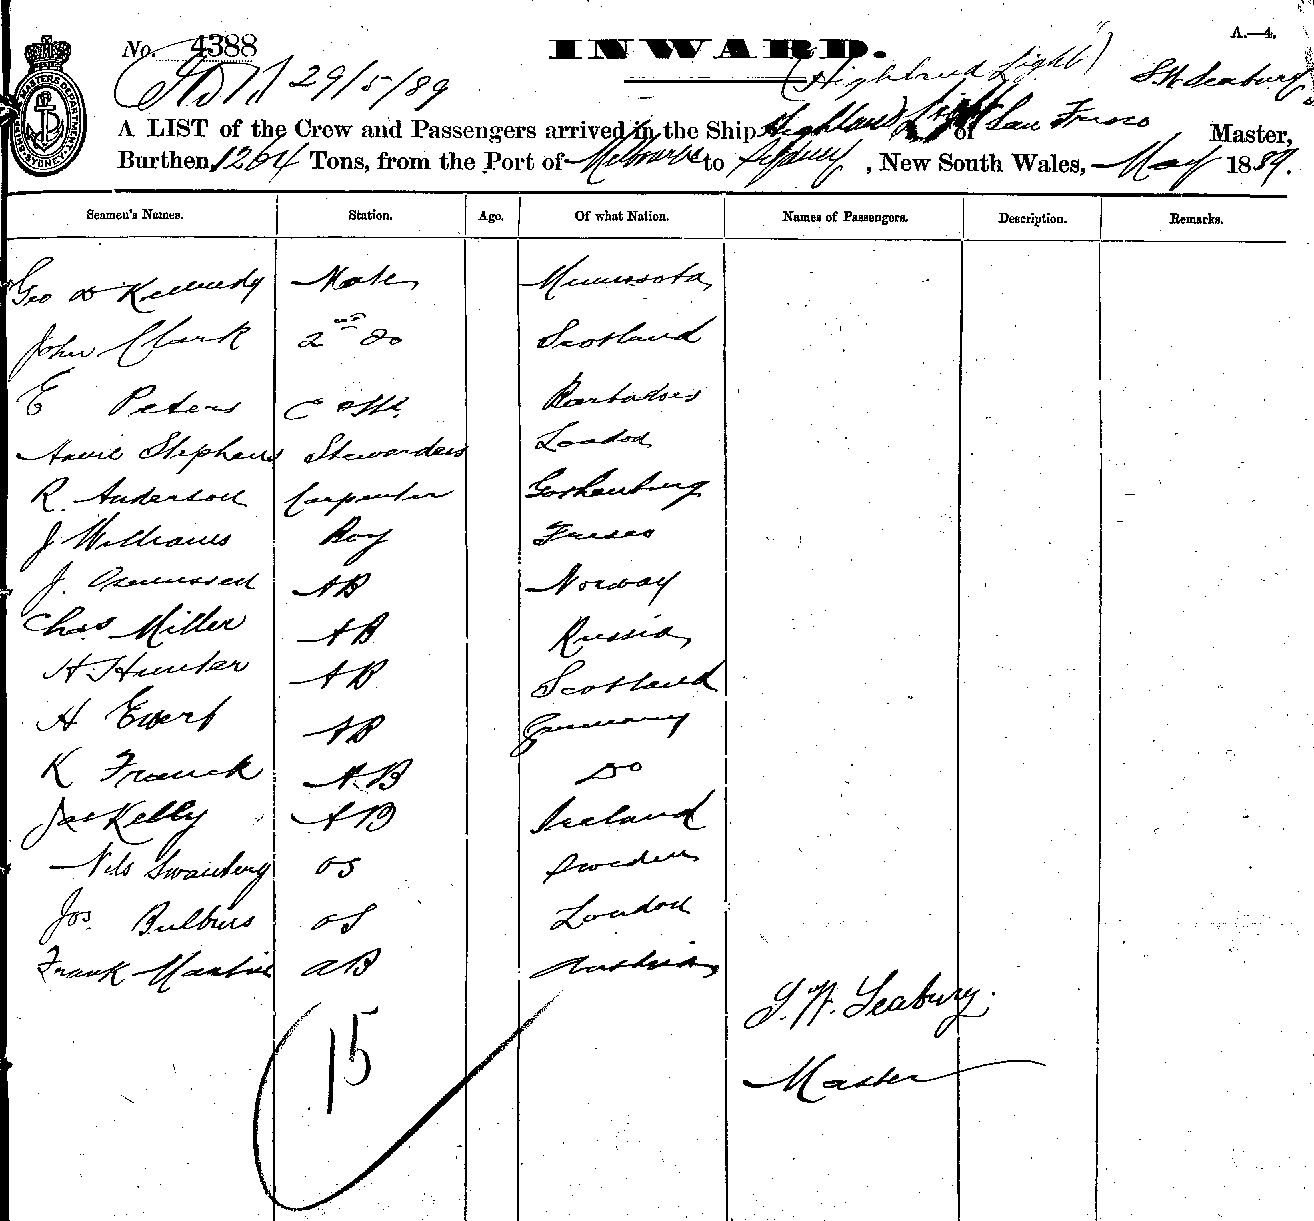 No. 4388
INWARD.
A.—4.
29/5/89
(Highland Light)
S.W. Seabury
A LIST of the Crew and Passengers arrived in the Ship Highland Light of San Frisco Master,
Burthen 1264 Tons, from the Port of Melbourne to Sydney, New South Wales, May 1889.
Seamen's Names. Station. Age. Of what Nation. Names of Passengers. Description. Remarks.
Geo D Kennedy Mate Minnesota
John Clark 2nd do Scotland
E Peters C & Std. Barbadoes
Annie Stephens Stewardess London
R. Anderson Carpenter Gothenburg
J Williams Boy Frisco
J. Osmussen AB Norway
Chas Miller AB Russia
H. Hunter AB Scotland
H Evert AB Germany
K Franck A.B Do
Jas Kelly AB Ireland
Nils Swanberg OS Sweden
Jos. Bulbus OS London
Frank Martin AB Austria
S. W. Seabury.
Master
15